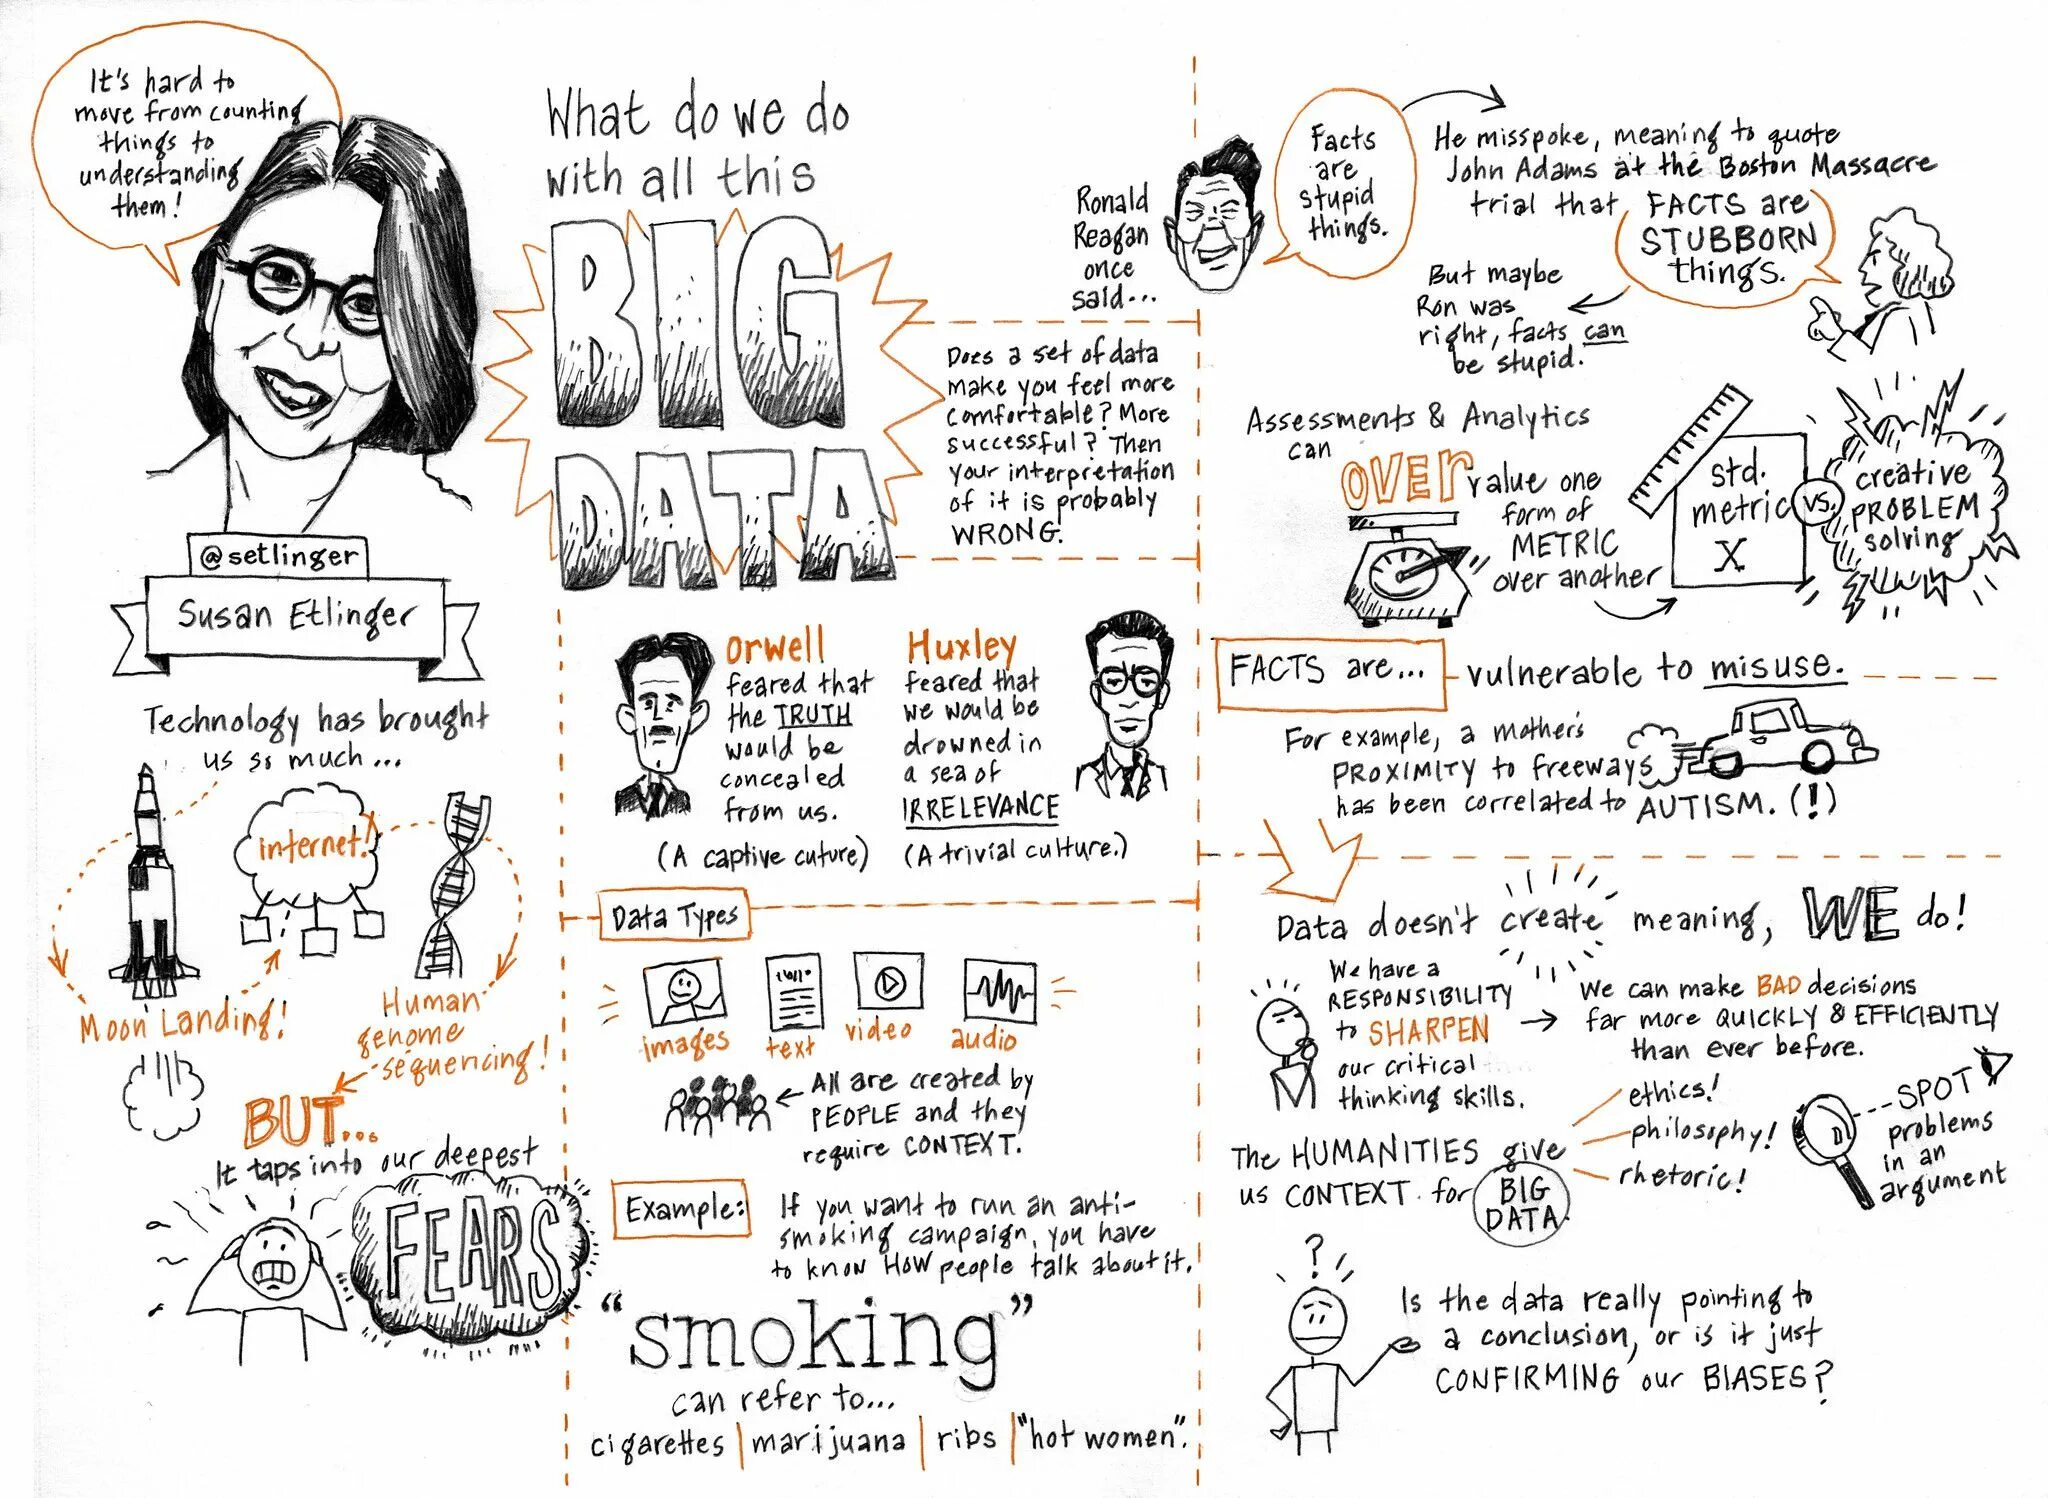 It's hard to
move from counting
things to
understanding
them!
@setlinger
Susan Etlinger
Technology has brought
us so much...
internet!
Moon Landing!
Human
genome
sequencing!
BUT...
It taps into our deepest
FEARS
What do we do
with all this
BIG
DATA
Does a set of data
make you feel more
comfortable? More
successful? Then
your interpretation
of it is probably
WRONG.
Orwell
feared that
the TRUTH
would be
concealed
from us.
(A captive cuture)
Huxley
feared that
we would be
drowned in
a sea of
IRRELEVANCE
(A trivial culture.)
Data Types
images
text
video
audio
All are created by
PEOPLE and they
require CONTEXT.
Example:
If you want to run an anti-
smoking campaign, you have
to know HOW people talk about it.
"smoking"
can refer to...
cigarettes | marijuana | ribs | "hot women".
Ronald
Reagan
once
said...
Facts
are
stupid
things.
He misspoke, meaning to quote
John Adams at the Boston Massacre
trial that
FACTS are
STUBBORN
things.
But maybe
Ron was
right, facts can
be stupid.
Assessments & Analytics
can
OVER value one
form of
METRIC
over another
std.
metric
X
vs.
creative
PROBLEM
solving
FACTS are...
vulnerable to misuse.
For example, a mother's
PROXIMITY to freeways
has been correlated to AUTISM. (!)
Data doesn't create meaning, WE do!
We have a
RESPONSIBILITY
to SHARPEN
our critical
thinking skills.
We can make BAD decisions
far more QUICKLY & EFFICIENTLY
than ever before.
The HUMANITIES give
us CONTEXT for
BIG
DATA.
ethics!
philosophy!
rhetoric!
SPOT
problems
in an
argument
?
Is the data really pointing to
a conclusion, or is it just
CONFIRMING our BIASES?